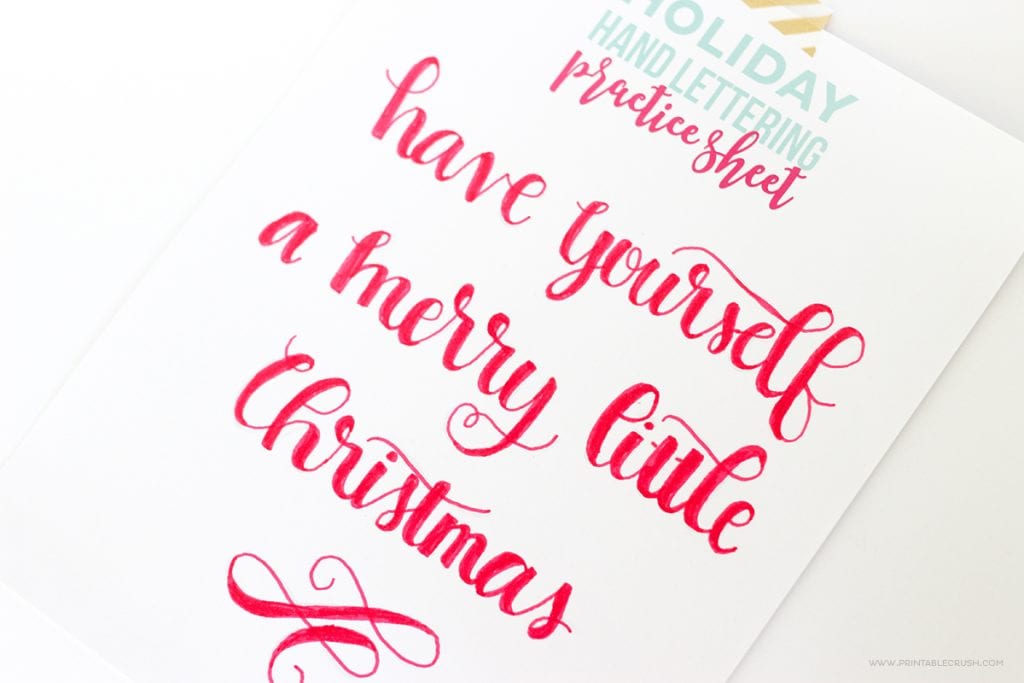 HOLIDAY
HAND LETTERING
practice sheet
have yourself
a merry little
Christmas
WWW.PRINTABLECRUSH.COM